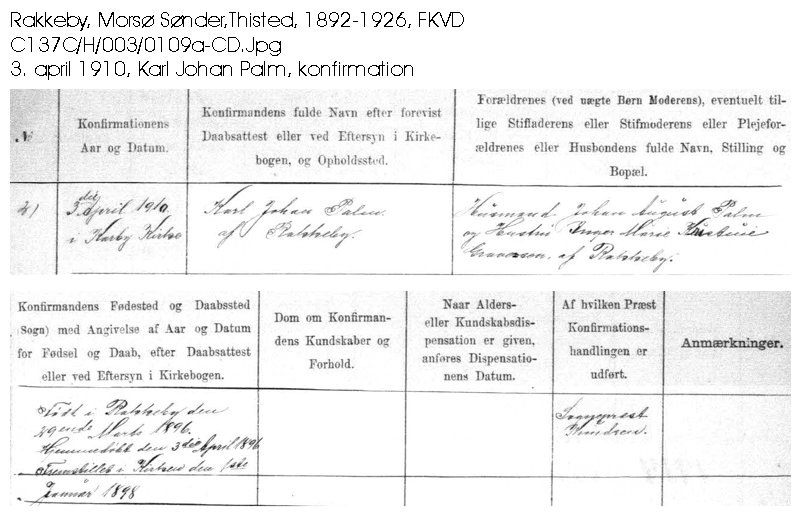 Rakkeby, Morsø Sønder,Thisted, 1892-1926, FKVD
C137C/H/003/0109a-CD.Jpg
3. april 1910, Karl Johan Palm, konfirmation
№
Konfirmationens
Aar og Datum.
Konfirmandens fulde Navn efter forevist
Daabsattest eller ved Eftersyn i Kirke-
bogen, og Opholdssted.
Forældrenes (ved uægte Børn Moderens), eventuelt til-
lige Stiffaderens eller Stifmoderens eller Plejefor-
ældrenes eller Husbondens fulde Navn, Stilling og
Bopæl.
3die April 1910
i Karby Kirke
Karl Johan Palm.
af Rakkeby.
Husmand Johan August Palm
og Hustru Inger Marie Kristine
af Rakkeby.
Konfirmandens Fødested og Daabssted
(Sogn) med Angivelse af Aar og Datum
for Fødsel og Daab, efter Daabsattest
eller ved Eftersyn i Kirkebogen.
Dom om Konfirman-
dens Kundskaber og
Forhold.
Naar Alders-
eller Kundskabsdis-
pensation er given,
anføres Dispensatio-
nens Datum.
Af hvilken Præst
Konfirmations-
handlingen er
udført.
Anmærkninger.
Født i Rakkeby den
29ende Marts 1896.
Hjemmedøbt den 3die April 1896
Fremstillet i Kirken den 1ste
Januar 1898
Sognepræst
Knudsen.